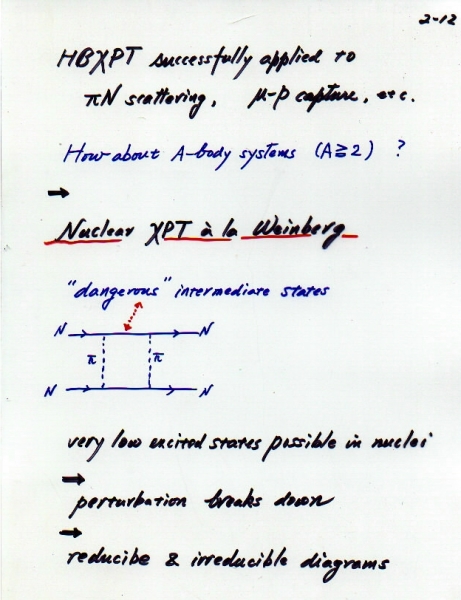 2-12
HBχPT successfully applied to
πN scattering, μ-p capture, etc.
How about A-body systems (A≧2) ?
→
Nuclear χPT à la Weinberg
"dangerous" intermediate states
N N
π π
N N
very low excited states possible in nuclei
→
perturbation breaks down
→
reducibe & irreducible diagrams